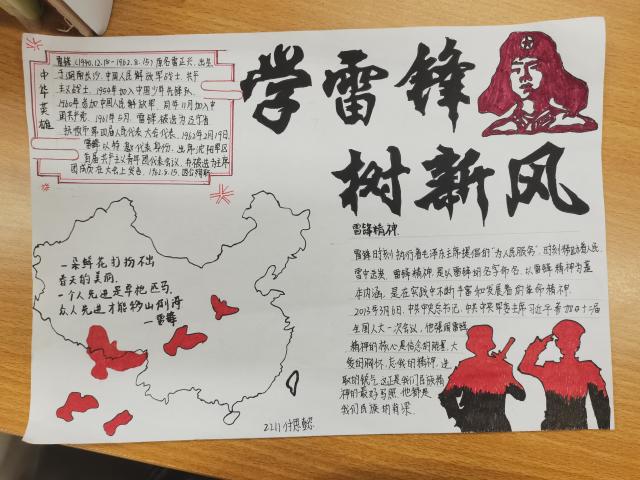 学雷锋
树新风
中华英雄
雷锋(1940.12.18-1962.8.15)原名雷正兴,出生
于湖南长沙,中国人民解放军战士,共产
主义战士,1954年加入中国少年先锋队,
1960年参加中国人民解放军,同年11月加入中
国共产党。1961年5月,雷锋被选为辽宁省
抚顺市第四届人民代表大会代表。1962年2月19日,
雷锋以特邀代表身份,出席沈阳军区
首届共产主义青年团代表会议,并被选为主席
团成员在大会上发言。1962.8.15,因公殉职
一朵鲜花打扮不出
春天的美丽,
一个人先进是单枪匹马,
众人先进才能移山倒海
—雷锋
雷锋精神
雷锋时刻执行着毛泽东主席提倡的"为人民服务",时刻帮助着人民
雪中送炭,雷锋精神,是以雷锋的名字命名,以雷锋精神为基
本内涵,是在实践中不断丰富和发展着的革命精神,
2013年3月6日,中共中央总书记,中共中央军委主席习近平参加十二届
全国人大一次会议,他强调雷锋
精神的核心是信念的能量,大
爱的胸怀,忘我的精神,进
取的锐气,这正是我们民族精
神的最好写照,他都是
我们民族的脊梁
2211